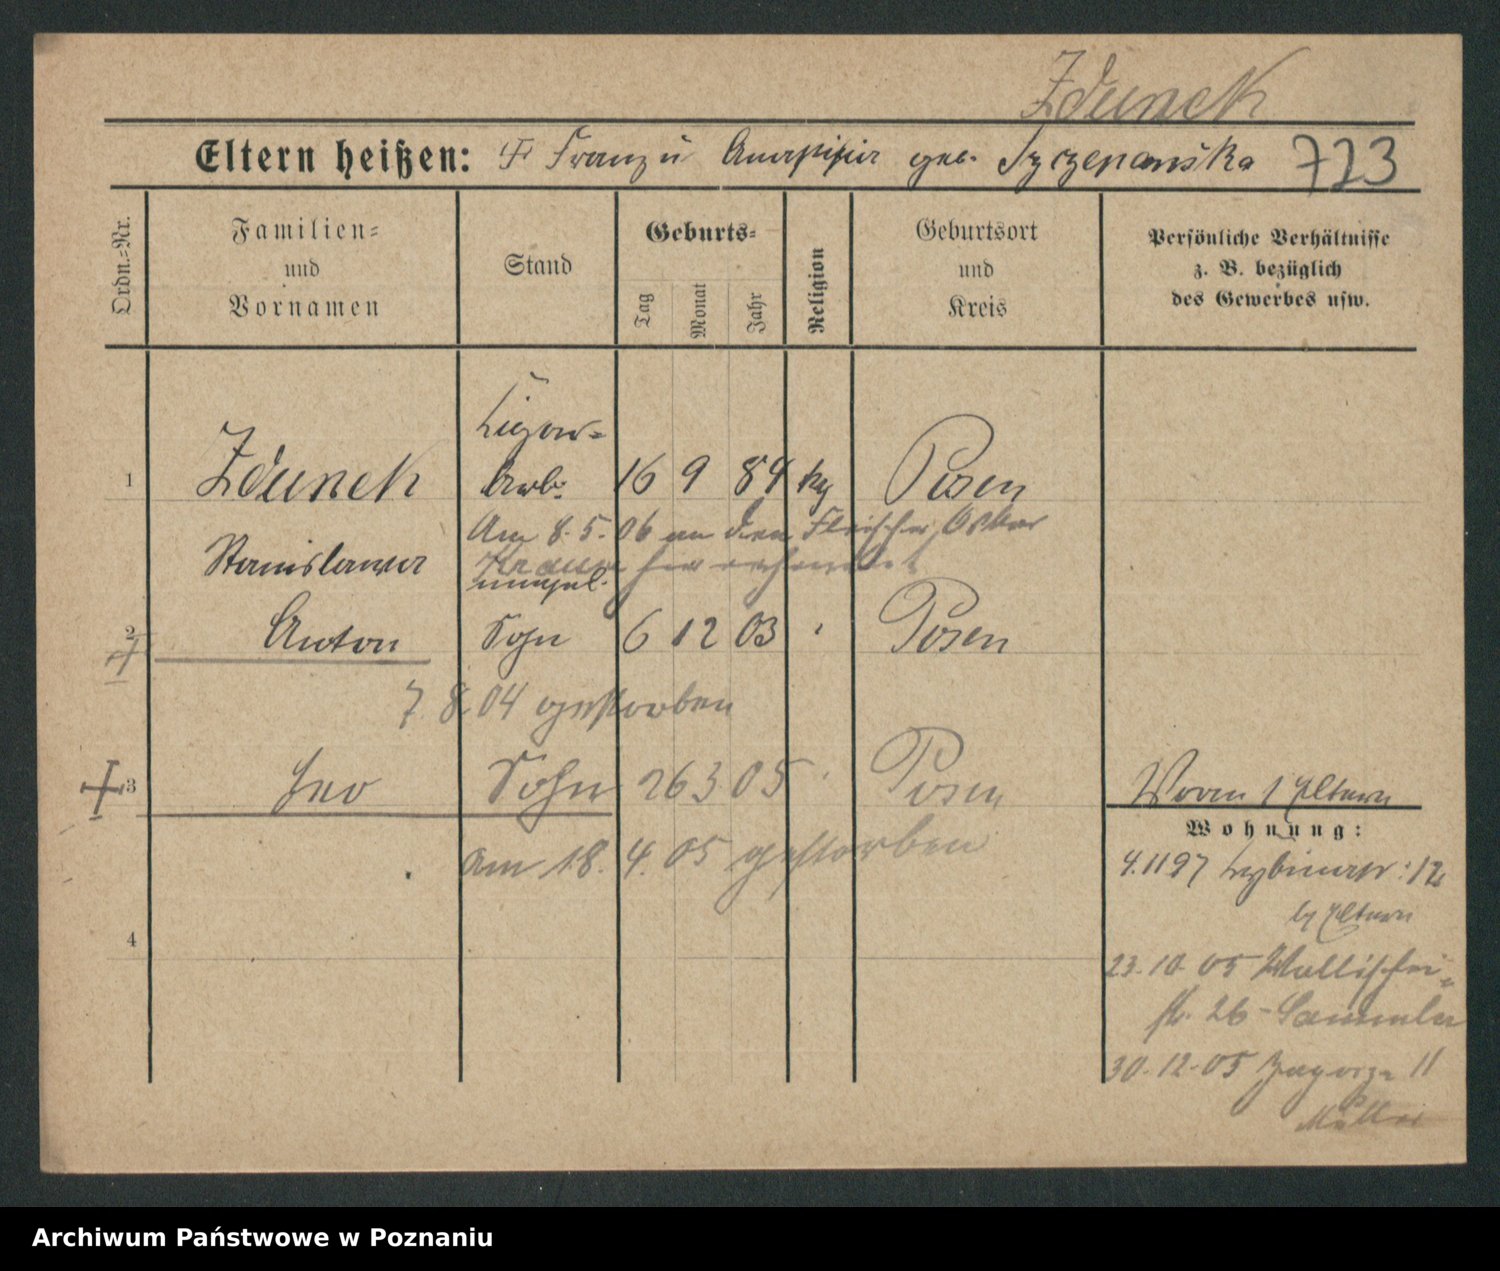 Zdunek
Eltern heißen: Franz u Anastasia geb. Szczepańska 723
Ordn.-Nr.
Familien= und Vornamen
Stand
Geburts=
Tag
Monat
Jahr
Religion
Geburtsort und Kreis
Persönliche Verhältnisse z. B. bezüglich des Gewerbes usw.
Zigarr=
1 Zdunek Arb. 16 9 84 kg Posen
Am 8. 5. 06 an den Fleischer Oskar
Stanislawa
unehel.
2 Anton Sohn 6 12 03 Posen
7. 8. 04 gestorben
3 Leo Sohn 26 3 05 Posen
Worm 1 Eltern
Wohnung:
am 18. 4. 05 gestorben
4.11 97 12
b Eltern
4
23. 10. 05 Wallischei=
str. 26 - Sammler
30. 12. 05 Zagorze 11
Müller
Archiwum Państwowe w Poznaniu